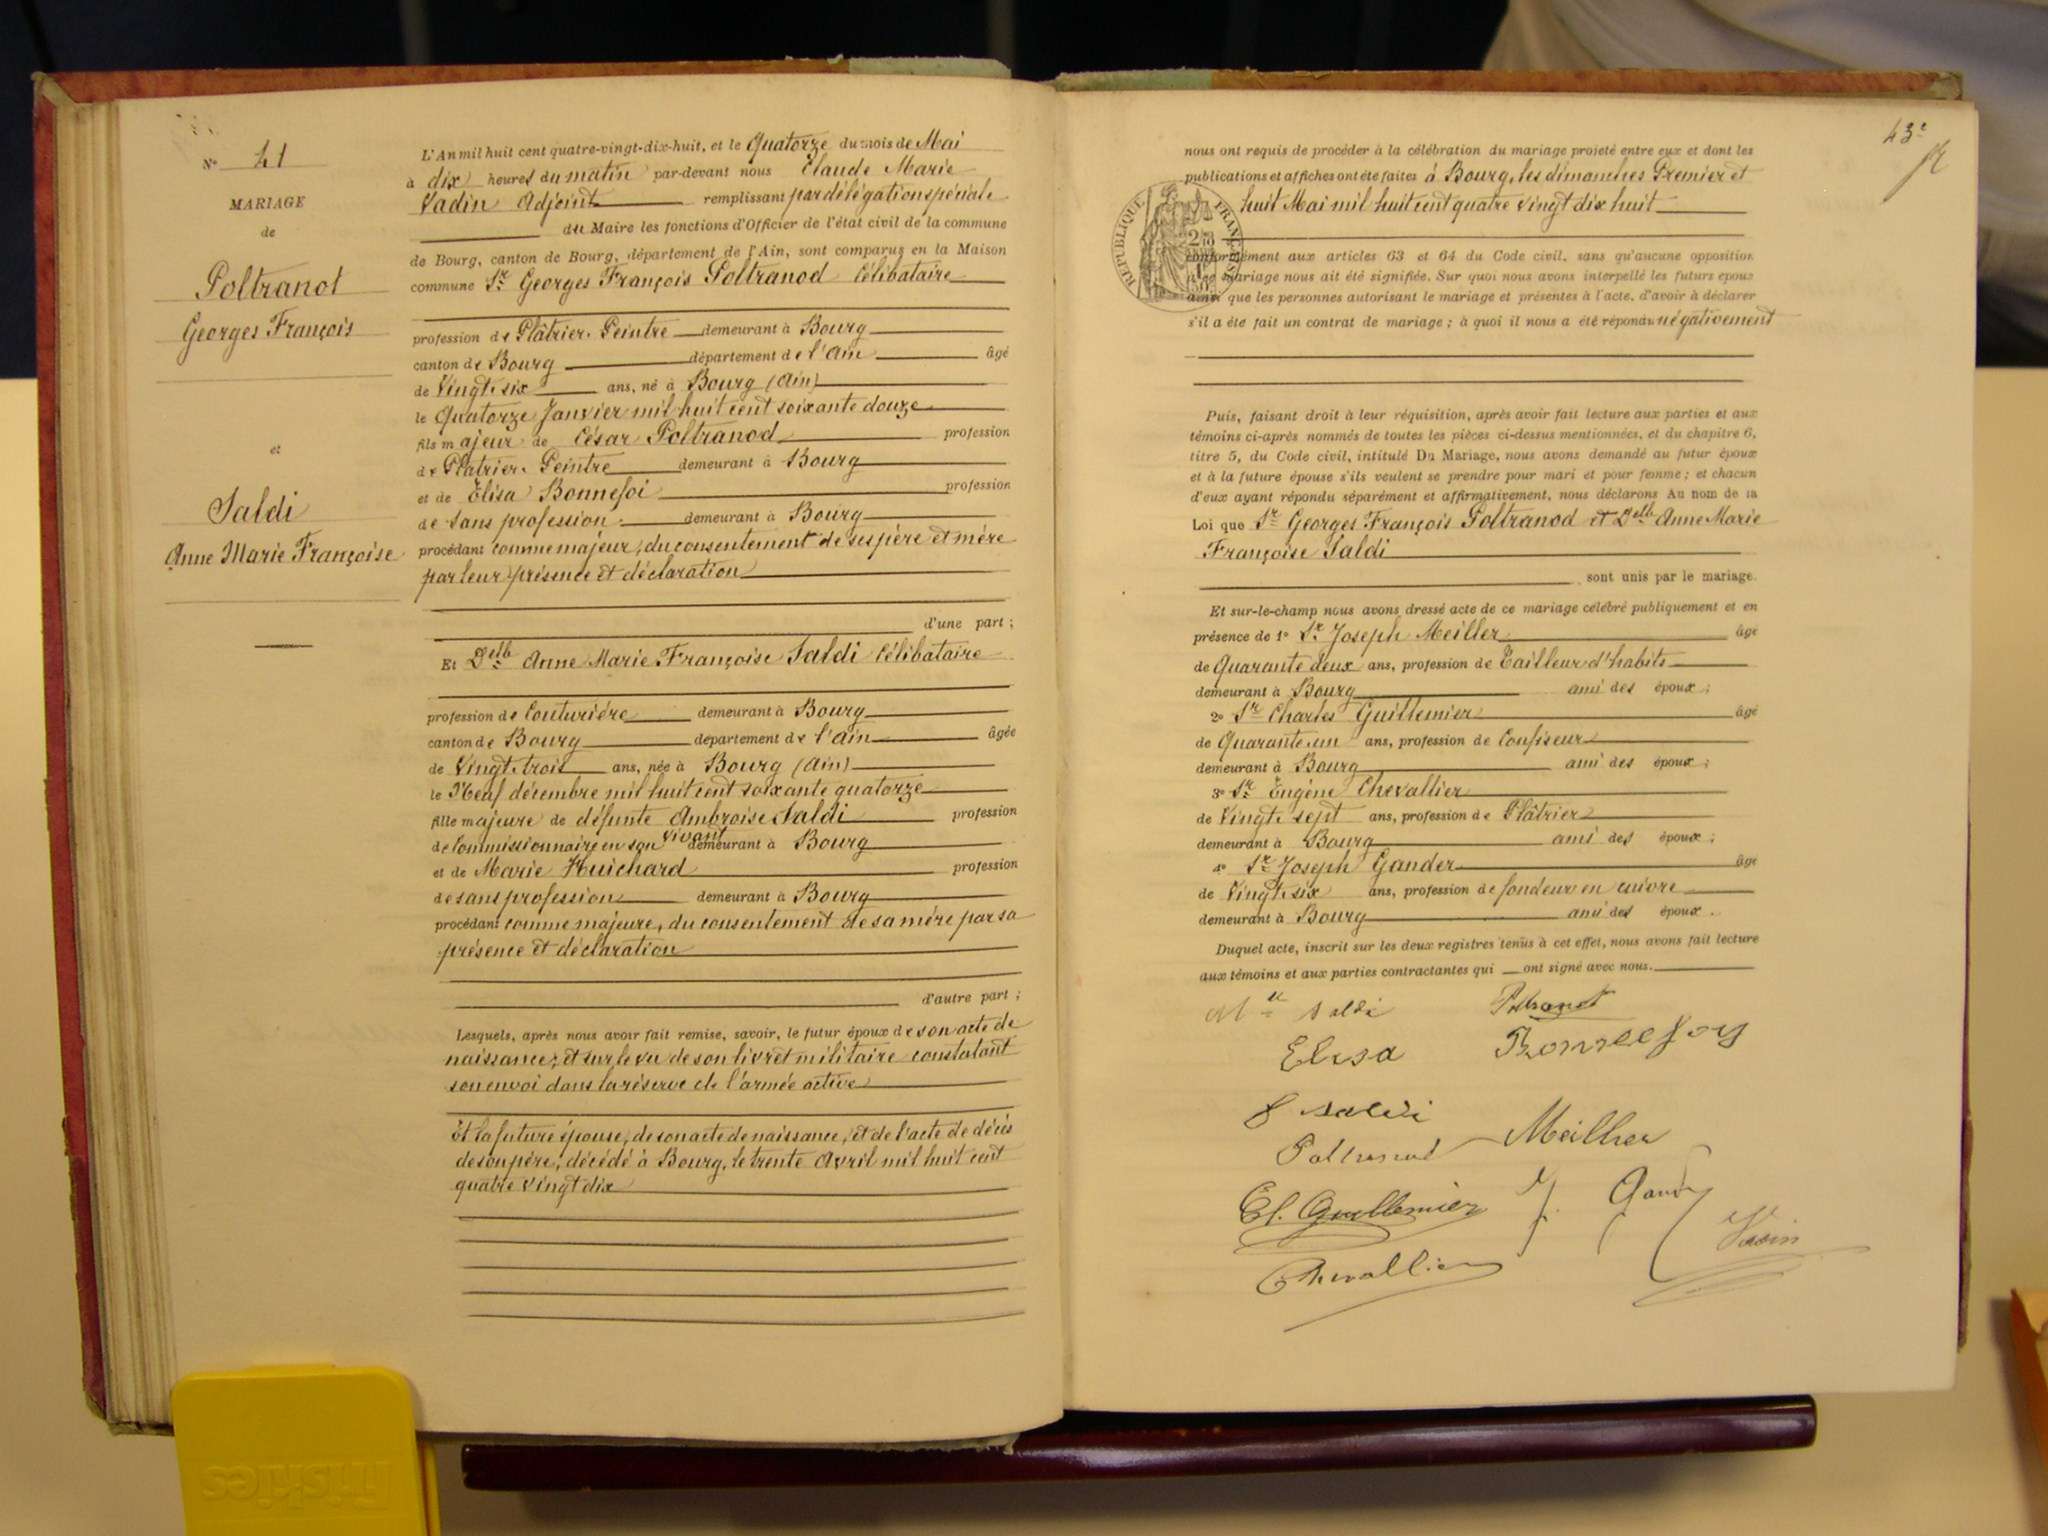 N° 41
MARIAGE
de
Poltranot
Georges François
et
Saldi
Anne Marie Françoise
L'An mil huit cent quatre-vingt-dix-huit, et le Quatorze du mois de Mai
à dix heures du matin par-devant nous Claude Marie
Vadin Adjoint remplissant par délégation spéciale
du Maire les fonctions d'Officier de l'état civil de la commune
de Bourg, canton de Bourg, département de l'Ain, sont comparus en la Maison
commune Sr. Georges François Poltranod Célibataire
profession de Plâtrier. Peintre demeurant à Bourg
canton de Bourg département de l'Ain âgé
de Vingt. six ans, né à Bourg (Ain)
le Quatorze Janvier mil huit cent soixante douze
fils majeur de César Poltranod profession
de Plâtrier. Peintre demeurant à Bourg
et de Elisa Bonnefoi profession
de sans profession demeurant à Bourg
procédant comme majeur, du consentement de ses père et mère
par leur présence et déclaration
d'une part ;
Et Delle Anne Marie Françoise Saldi Célibataire
profession de Couturière demeurant à Bourg
canton de Bourg département de l'Ain âgée
de Vingt. trois ans, née à Bourg (Ain)
le Neuf décembre mil huit cent soixante quatorze
fille majeure de défunte Ambroise Saldi profession
de Commissionnaire en son vivant demeurant à Bourg
et de Marie Huichard profession
de sans profession demeurant à Bourg
procédant comme majeure, du consentement de sa mère par sa
présence et déclaration
d'autre part ;
Lesquels, après nous avoir fait remise, savoir, le futur époux de son acte de
naissance, et sur le vu de son livret militaire constatant
son envoi dans la réserve de l'armée active
Et la future épouse, de son acte de naissance, et de l'acte de décès
de son père, décédé à Bourg, le trente Avril mil huit cent
quatre vingt dix
43e
nous ont requis de procéder à la célébration du mariage projeté entre eux et dont les
publications et affiches ont été faites à Bourg, les dimanches Premier et
huit Mai mil huit cent quatre vingt dix huit
REPUBLIQUE FRANÇAISE
conformément aux articles 63 et 64 du Code civil, sans qu'aucune opposition
à ce mariage nous ait été signifiée. Sur quoi nous avons interpellé les futurs époux
ainsi que les personnes autorisant le mariage et présentes à l'acte, d'avoir à déclarer
s'il a été fait un contrat de mariage ; à quoi il nous a été répondu négativement
Puis, faisant droit à leur réquisition, après avoir fait lecture aux parties et aux
témoins ci-après nommés de toutes les pièces ci-dessus mentionnées, et du chapitre 6,
titre 5, du Code civil, intitulé Du Mariage, nous avons demandé au futur époux
et à la future épouse s'ils veulent se prendre pour mari et pour femme ; et chacun
d'eux ayant répondu séparément et affirmativement, nous déclarons Au nom de la
Loi que Sr. Georges François Poltranod et Delle Anne Marie
Françoise Saldi
sont unis par le mariage.
Et sur-le-champ nous avons dressé acte de ce mariage célébré publiquement et en
présence de 1° Sr. Joseph Meiller âgé
de Quarante deux ans, profession de Tailleur d'habits
demeurant à Bourg ami des époux ;
2° Sr. Charles Guillemier âgé
de Quarante. un ans, profession de Confiseur
demeurant à Bourg ami des époux ;
3° Sr. Eugène Chevallier
de Vingt. sept ans, profession de Plâtrier
demeurant à Bourg ami des époux ;
4° Sr. Joseph Gander âgé
de Vingt. six ans, profession de fondeur en cuivre
demeurant à Bourg ami des époux.
Duquel acte, inscrit sur les deux registres tenus à cet effet, nous avons fait lecture
aux témoins et aux parties contractantes qui ont signé avec nous.
Mlle Saldi Poltranot
Elisa Bonnefoy
Saldi
Poltranod Meilher
Ch. Guillemier J. Gander
Vadin
Chevallier
friskies